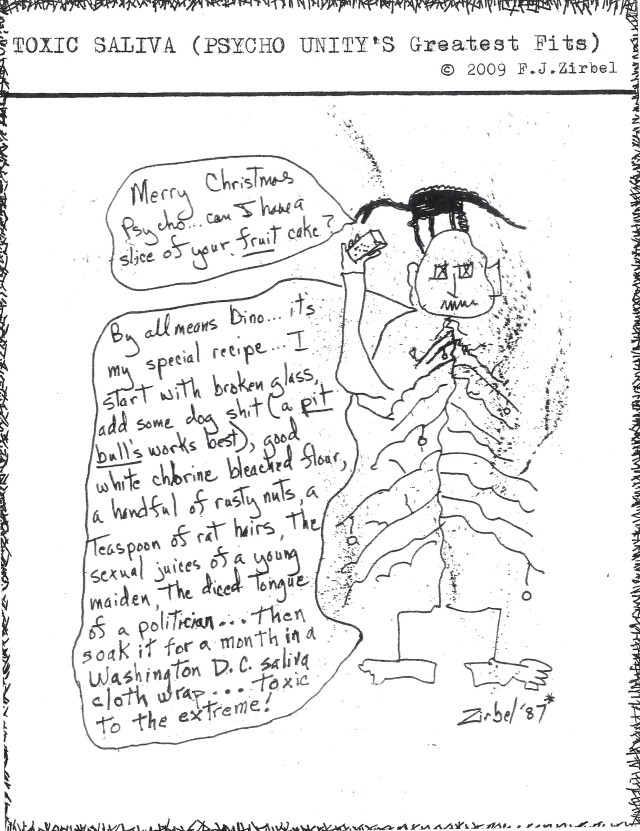 TOXIC SALIVA (PSYCHO UNITY'S Greatest Fits)
© 2009 F.J.Zirbel
Merry Christmas
Psycho... can I have a
slice of your fruit cake?
By all means Dino... it's
my special recipe... I
start with broken glass,
add some dog shit (a pit
bull's works best), good
white chlorine bleached flour,
a handful of rusty nuts, a
Teaspoon of rat hairs, The
sexual juices of a young
maiden, The diced Tongue
of a politician... Then
soak it for a month in a
Washington D.C. saliva
cloth wrap... toxic
to the extreme!
Zirbel '87*